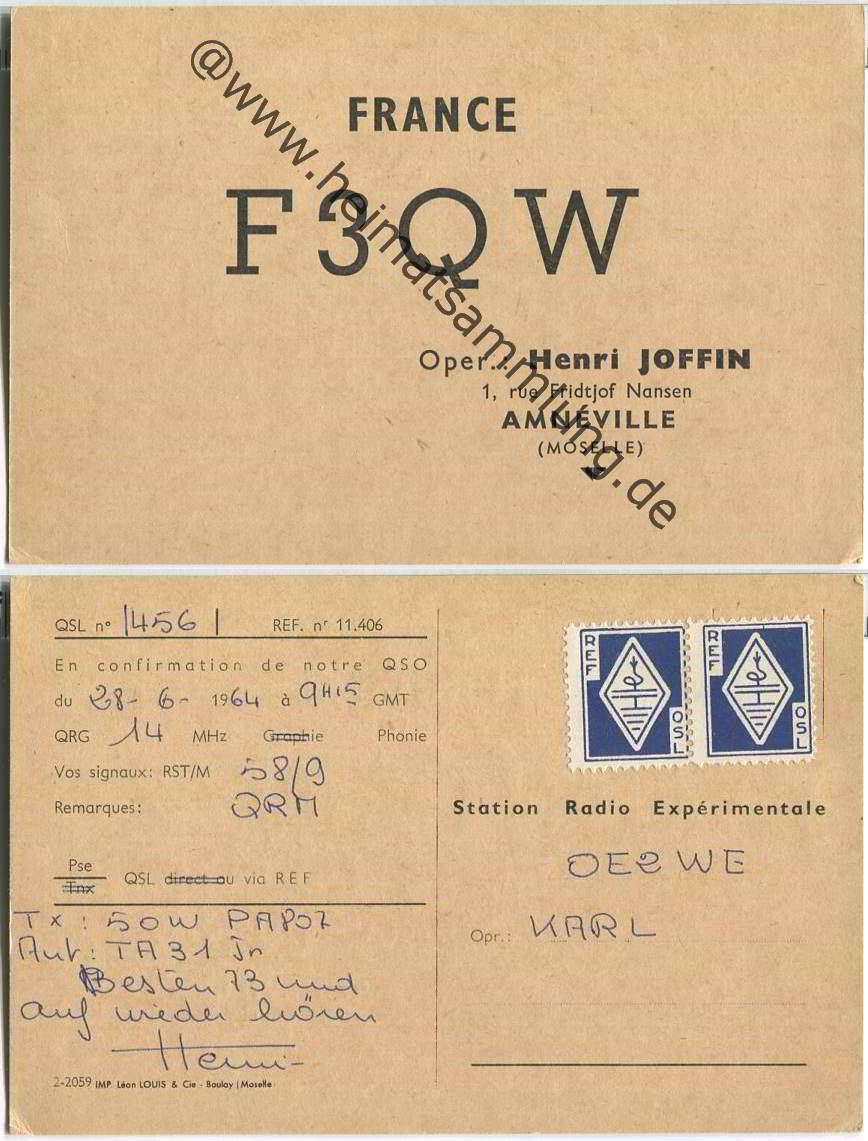 @www.heimatsammlung.de
FRANCE
F3QW
Oper.: Henri JOFFIN
1, rue Fridtjof Nansen
AMNÉVILLE
(MOSELLE)
QSL n° 1456 REF. nr 11.406
En confirmation de notre QSO
du 28-6-1964 à 9H15 GMT
QRG 14 MHz Graphie Phonie
Vos signaux: RST/M 58/9
Remarques: QRM
Pse
Tnx QSL direct ou via REF
Tx: 50W PA807
Ant: TA31 Jr
Besten 73 und
auf wieder hören
Henri
2-2059 IMP. Léon LOUIS & Cie - Boulay (Moselle)
REF QSL
REF QSL
Station Radio Expérimentale
OE2WE
Opr.: KARL